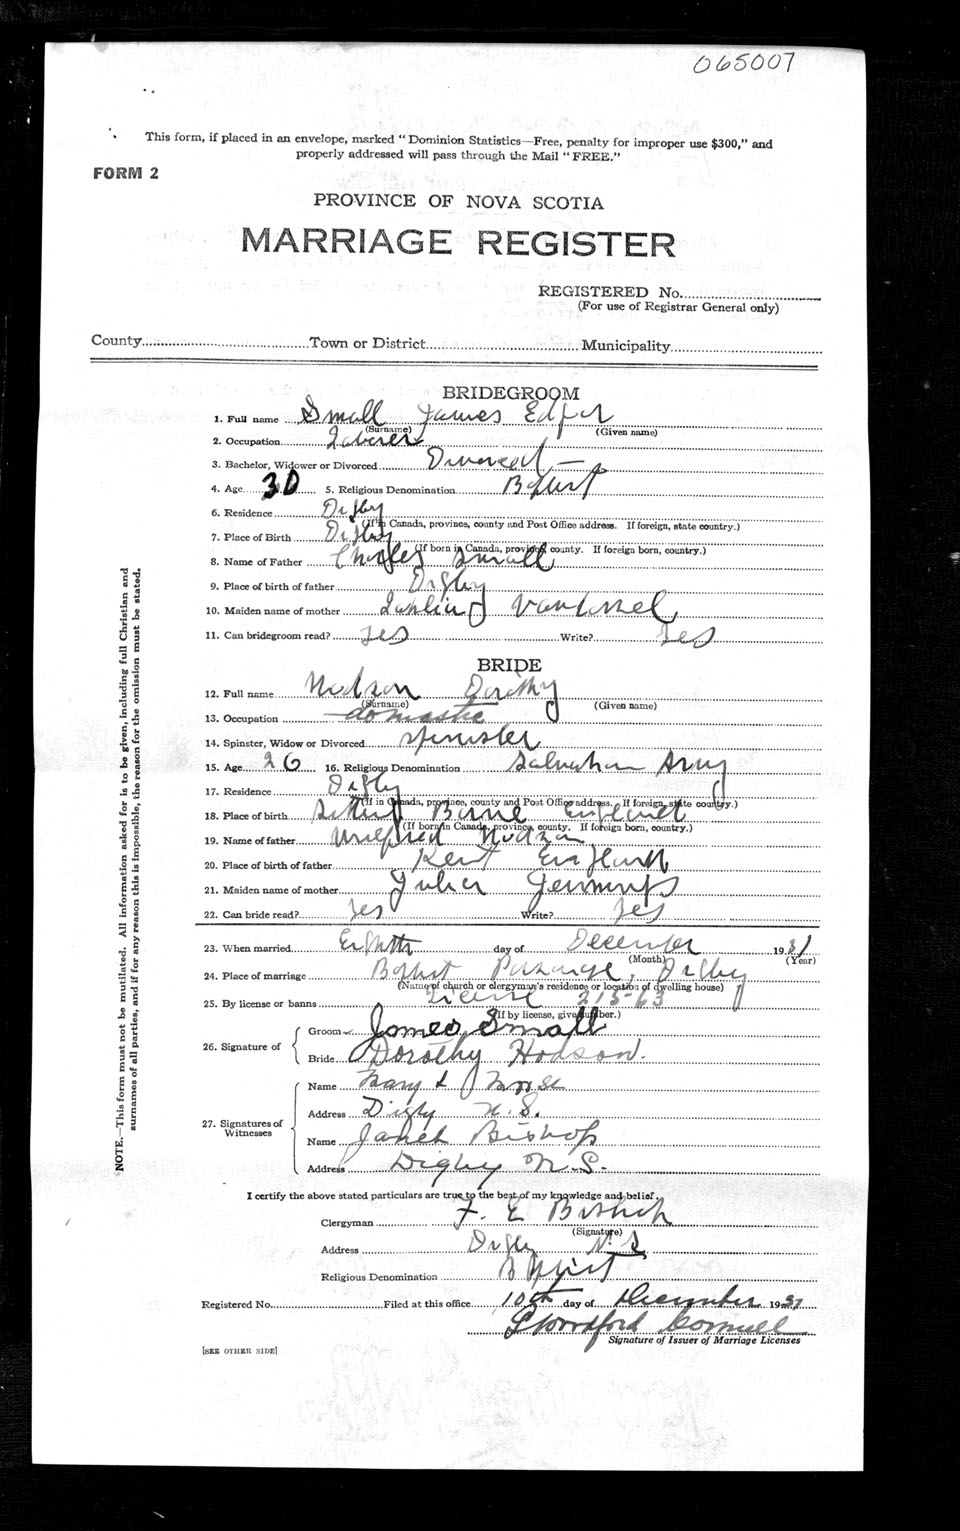 065007
This form, if placed in an envelope, marked "Dominion Statistics—Free, penalty for improper use $300," and
properly addressed will pass through the Mail "FREE."
FORM 2
PROVINCE OF NOVA SCOTIA
MARRIAGE REGISTER
REGISTERED No.
(For use of Registrar General only)
County Town or District Municipality
BRIDEGROOM
1. Full name Small James Edgar
(Surname) (Given name)
2. Occupation Laborer
3. Bachelor, Widower or Divorced Divorced —
4. Age 30 5. Religious Denomination Baptist
6. Residence Digby
(If in Canada, province, county and Post Office address. If foreign, state country.)
7. Place of Birth Digby
(If born in Canada, province, county. If foreign born, country.)
8. Name of Father Charles Small
9. Place of birth of father Digby
10. Maiden name of mother
11. Can bridegroom read? Yes Write? Yes
BRIDE
12. Full name Hodson Dorothy
(Surname) (Given name)
13. Occupation domestic
14. Spinster, Widow or Divorced spinster
15. Age 26 16. Religious Denomination Salvation Army
17. Residence Digby
(If in Canada, province, county and Post Office address. If foreign, state country.)
18. Place of birth England
(If born in Canada, province, county. If foreign born, country.)
19. Name of father Hodson
20. Place of birth of father Kent England
21. Maiden name of mother Julia Jennings
22. Can bride read? Yes Write? Yes
23. When married Eighth day of December 1931
(Month) (Year)
24. Place of marriage Baptist Parsonage, Digby
(Name of church or clergyman's residence or location of dwelling house)
25. By license or banns License 315-63
(If by license, give number.)
26. Signature of
Groom James Small
Bride Dorothy Hodson.
27. Signatures of Witnesses
Name Mary L Morse
Address Digby N.S.
Name Janet Bishop
Address Digby N.S.
I certify the above stated particulars are true to the best of my knowledge and belief.
Clergyman F. E. Bishop
(Signature)
Address Digby N.S
Religious Denomination Baptist
Registered No. Filed at this office 10th day of December 1931
Cornwell
Signature of Issuer of Marriage Licenses
[SEE OTHER SIDE]
NOTE.—This form must not be mutilated. All information asked for is to be given, including full Christian and
surnames of all parties, and if for any reason this is impossible, the reason for the omission must be stated.